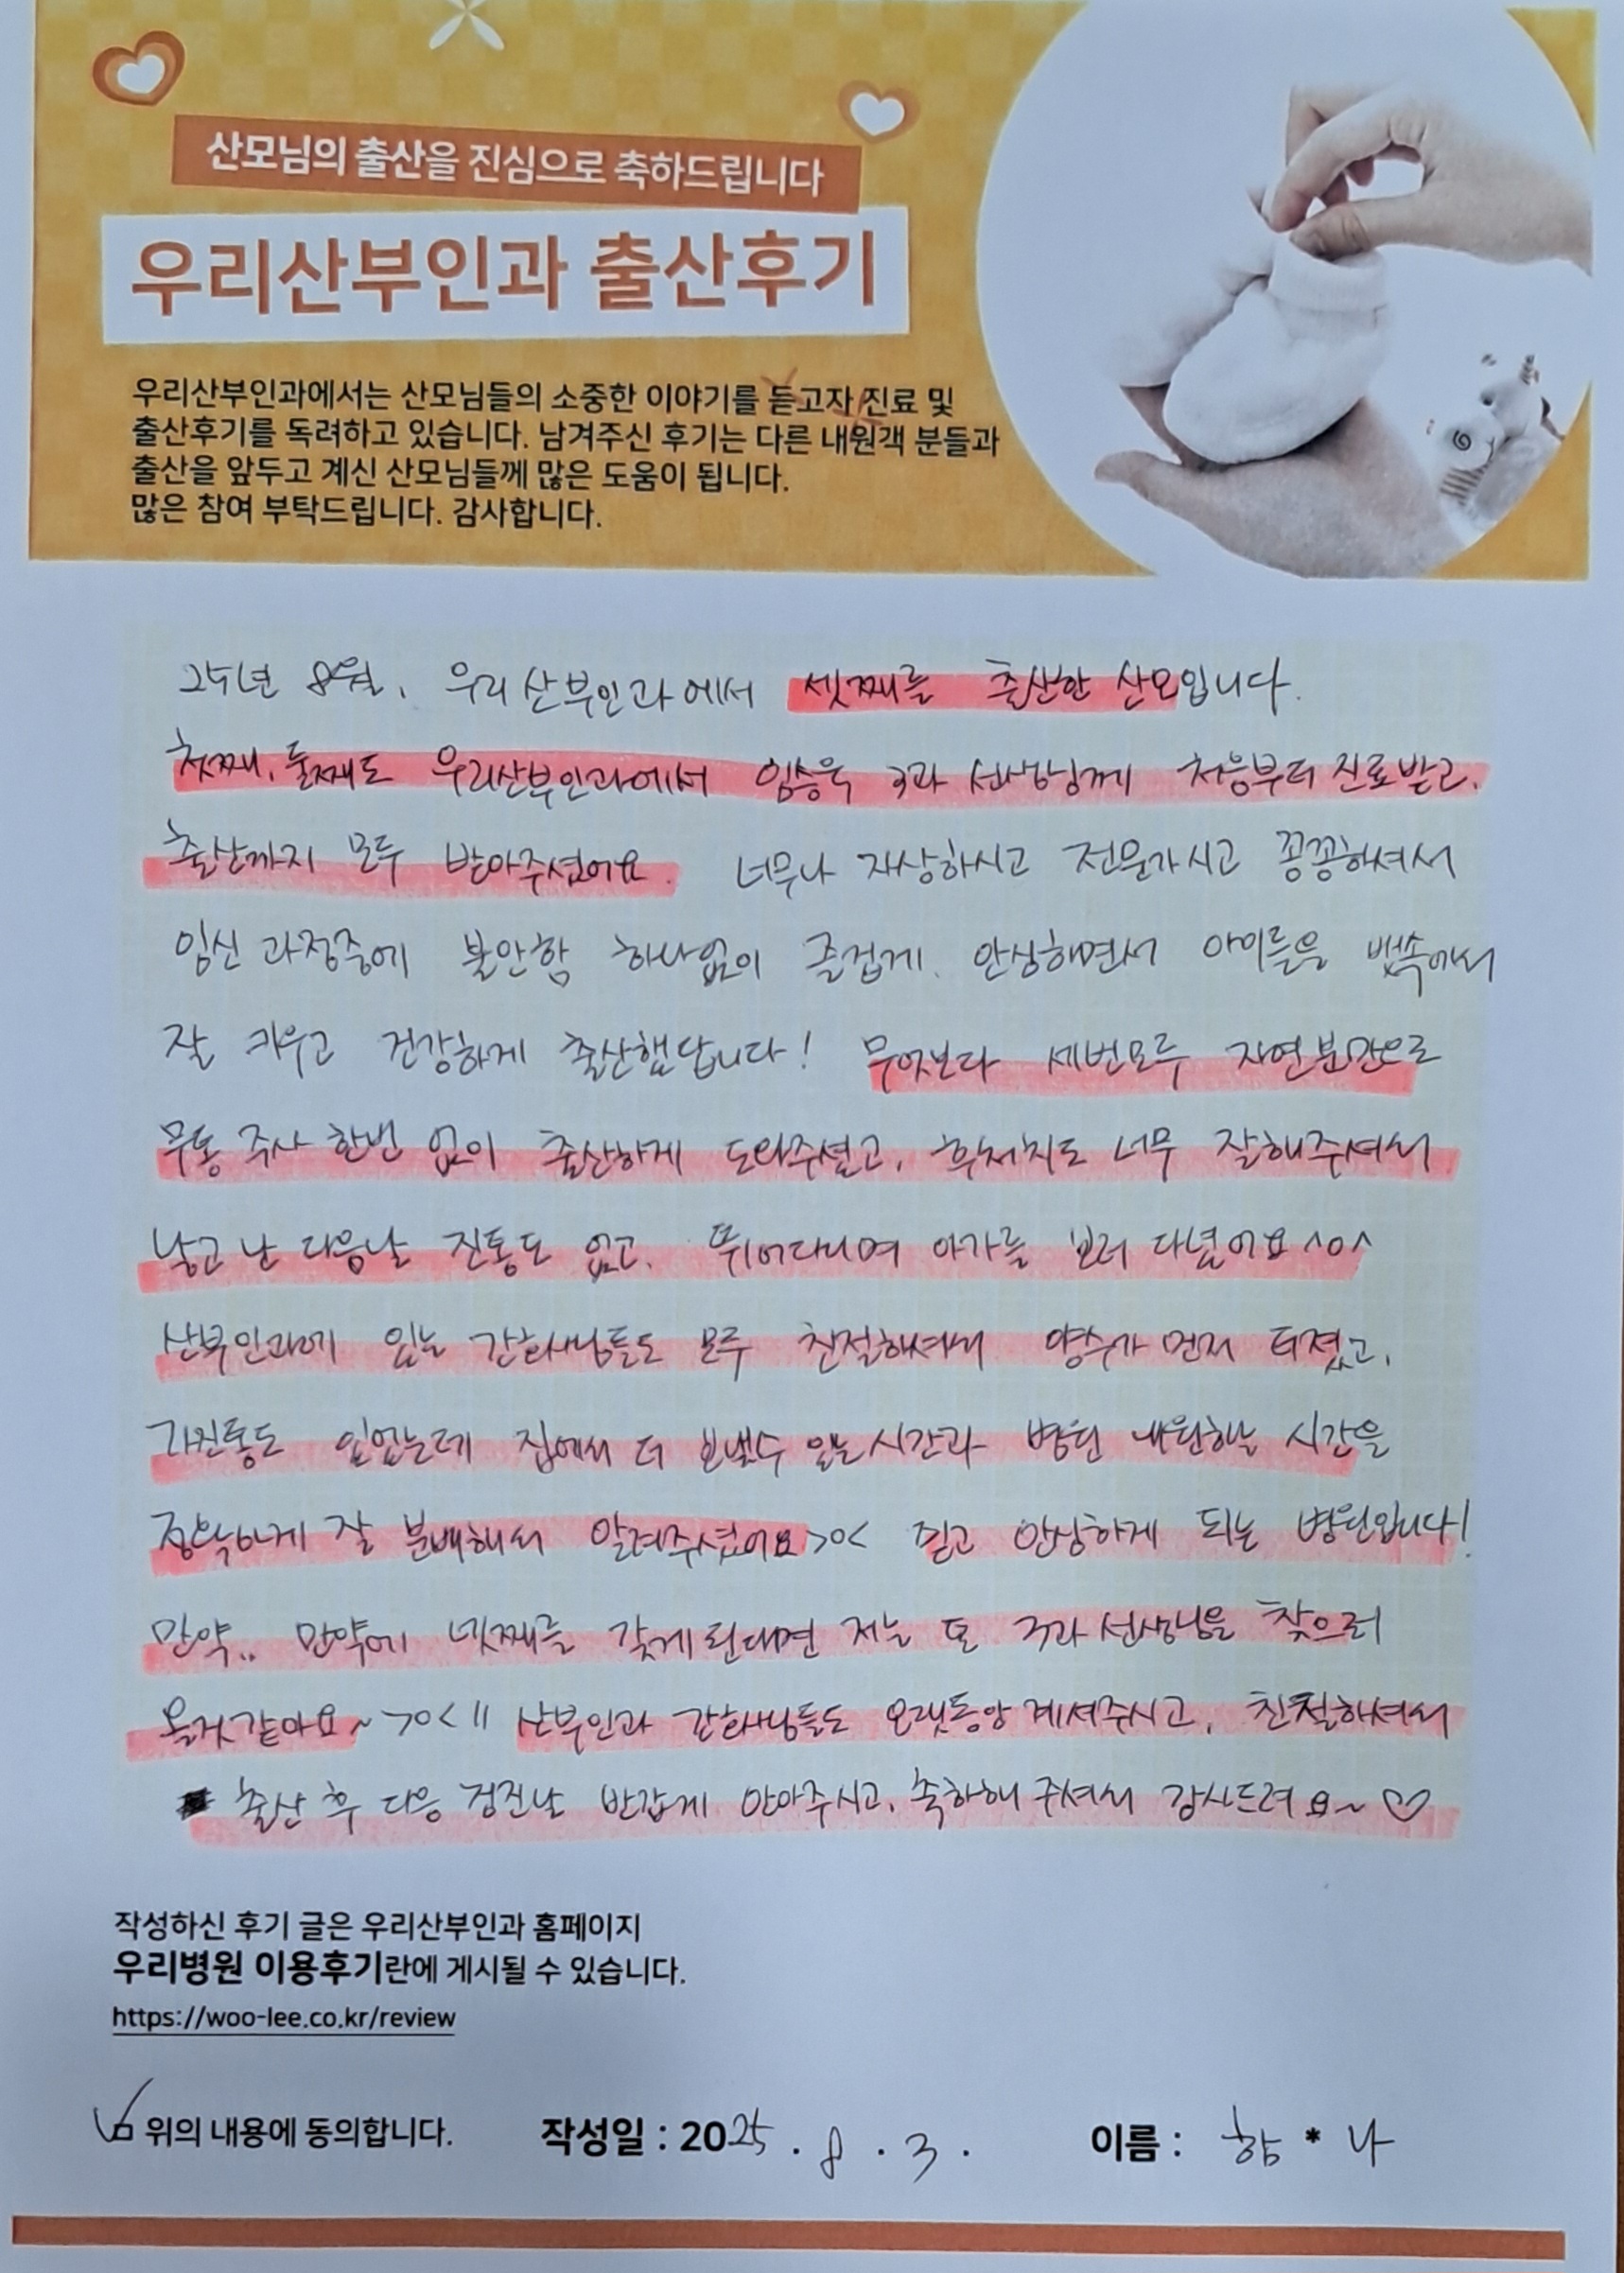 산모님의 출산을 진심으로 축하드립니다
우리산부인과 출산후기
우리산부인과에서는 산모님들의 소중한 이야기를 듣고자 진료 및
출산후기를 독려하고 있습니다. 남겨주신 후기는 다른 내원객 분들과
출산을 앞두고 계신 산모님들께 많은 도움이 됩니다.
많은 참여 부탁드립니다. 감사합니다.
25년 8월, 우리 산부인과에서 셋째를 출산한 산모입니다.
첫째, 둘째도 우리산부인과에서 임승욱 3과 선생님께 처음부터 진료받고,
출산까지 모두 받아주셨어요. 너무나 자상하시고 전문가시고 꼼꼼하셔서
임신 과정중에 불안함 하나없이 즐겁게, 안심하면서 아이들을 뱃속에서
잘 키우고 건강하게 출산했답니다! 무엇보다 세번모두 자연분만으로
무통 주사 한번 없이 출산하게 도와주셨고, 후처치도 너무 잘해주셔서
낳고 난 다음날 진통도 없고, 뛰어다니며 아가를 보러 다녔어요 ^o^
산부인과에 있는 간호사님들도 모두 친절하셔서 양수가 먼저 터졌고,
가진통도 있었는데 집에서 더 보낼수 있는 시간과 병원 내원하는 시간을
정확하게 잘 분배해서 알려주셨어요 >o< 믿고 안심하게 되는 병원입니다!
만약.. 만약에 넷째를 갖게된다면 저는 또 3과 선생님을 찾으러
올것같아요~ >o< !! 산부인과 간호사님들도 오랫동안 계셔주시고, 친절하셔서
출산 후 다음 검진날 반갑게 안아주시고, 축하해 주셔서 감사드려요~ ♡
작성하신 후기 글은 우리산부인과 홈페이지
우리병원 이용후기란에 게시될 수 있습니다.
https://woo-lee.co.kr/review
위의 내용에 동의합니다. 작성일 : 2025 . 8 . 3 . 이름 : 함 * 나